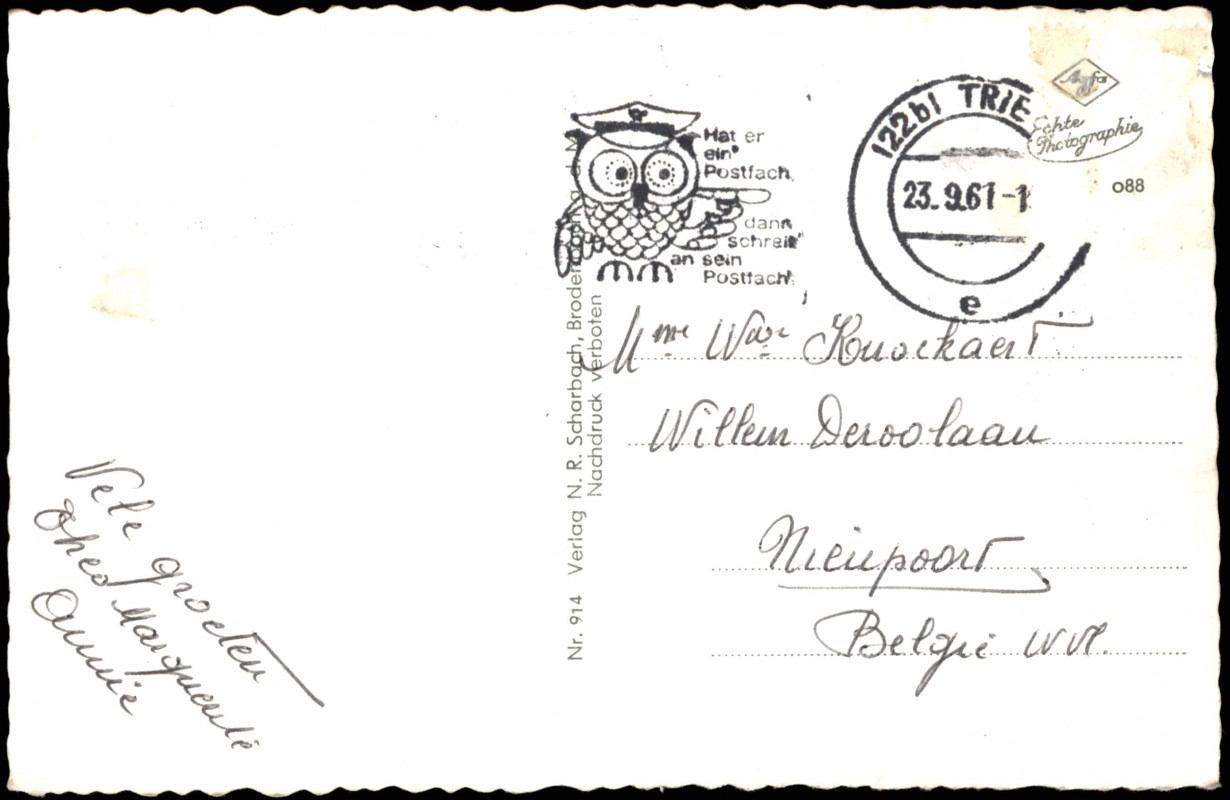 Hat er
ein
Postfach,
dann
schreib'
an sein
Postfach!
(22b) TRIE
23.9.61-1
e
Agfa
Echte
Photographie
088
Mme Wwe Knockaert
Willem Deroolaan
Nieupoort
België WVl.
Nr. 914 Verlag N. R. Scharbach,
Nachdruck verboten
Vele groeten
Theo Marguerite
Annie